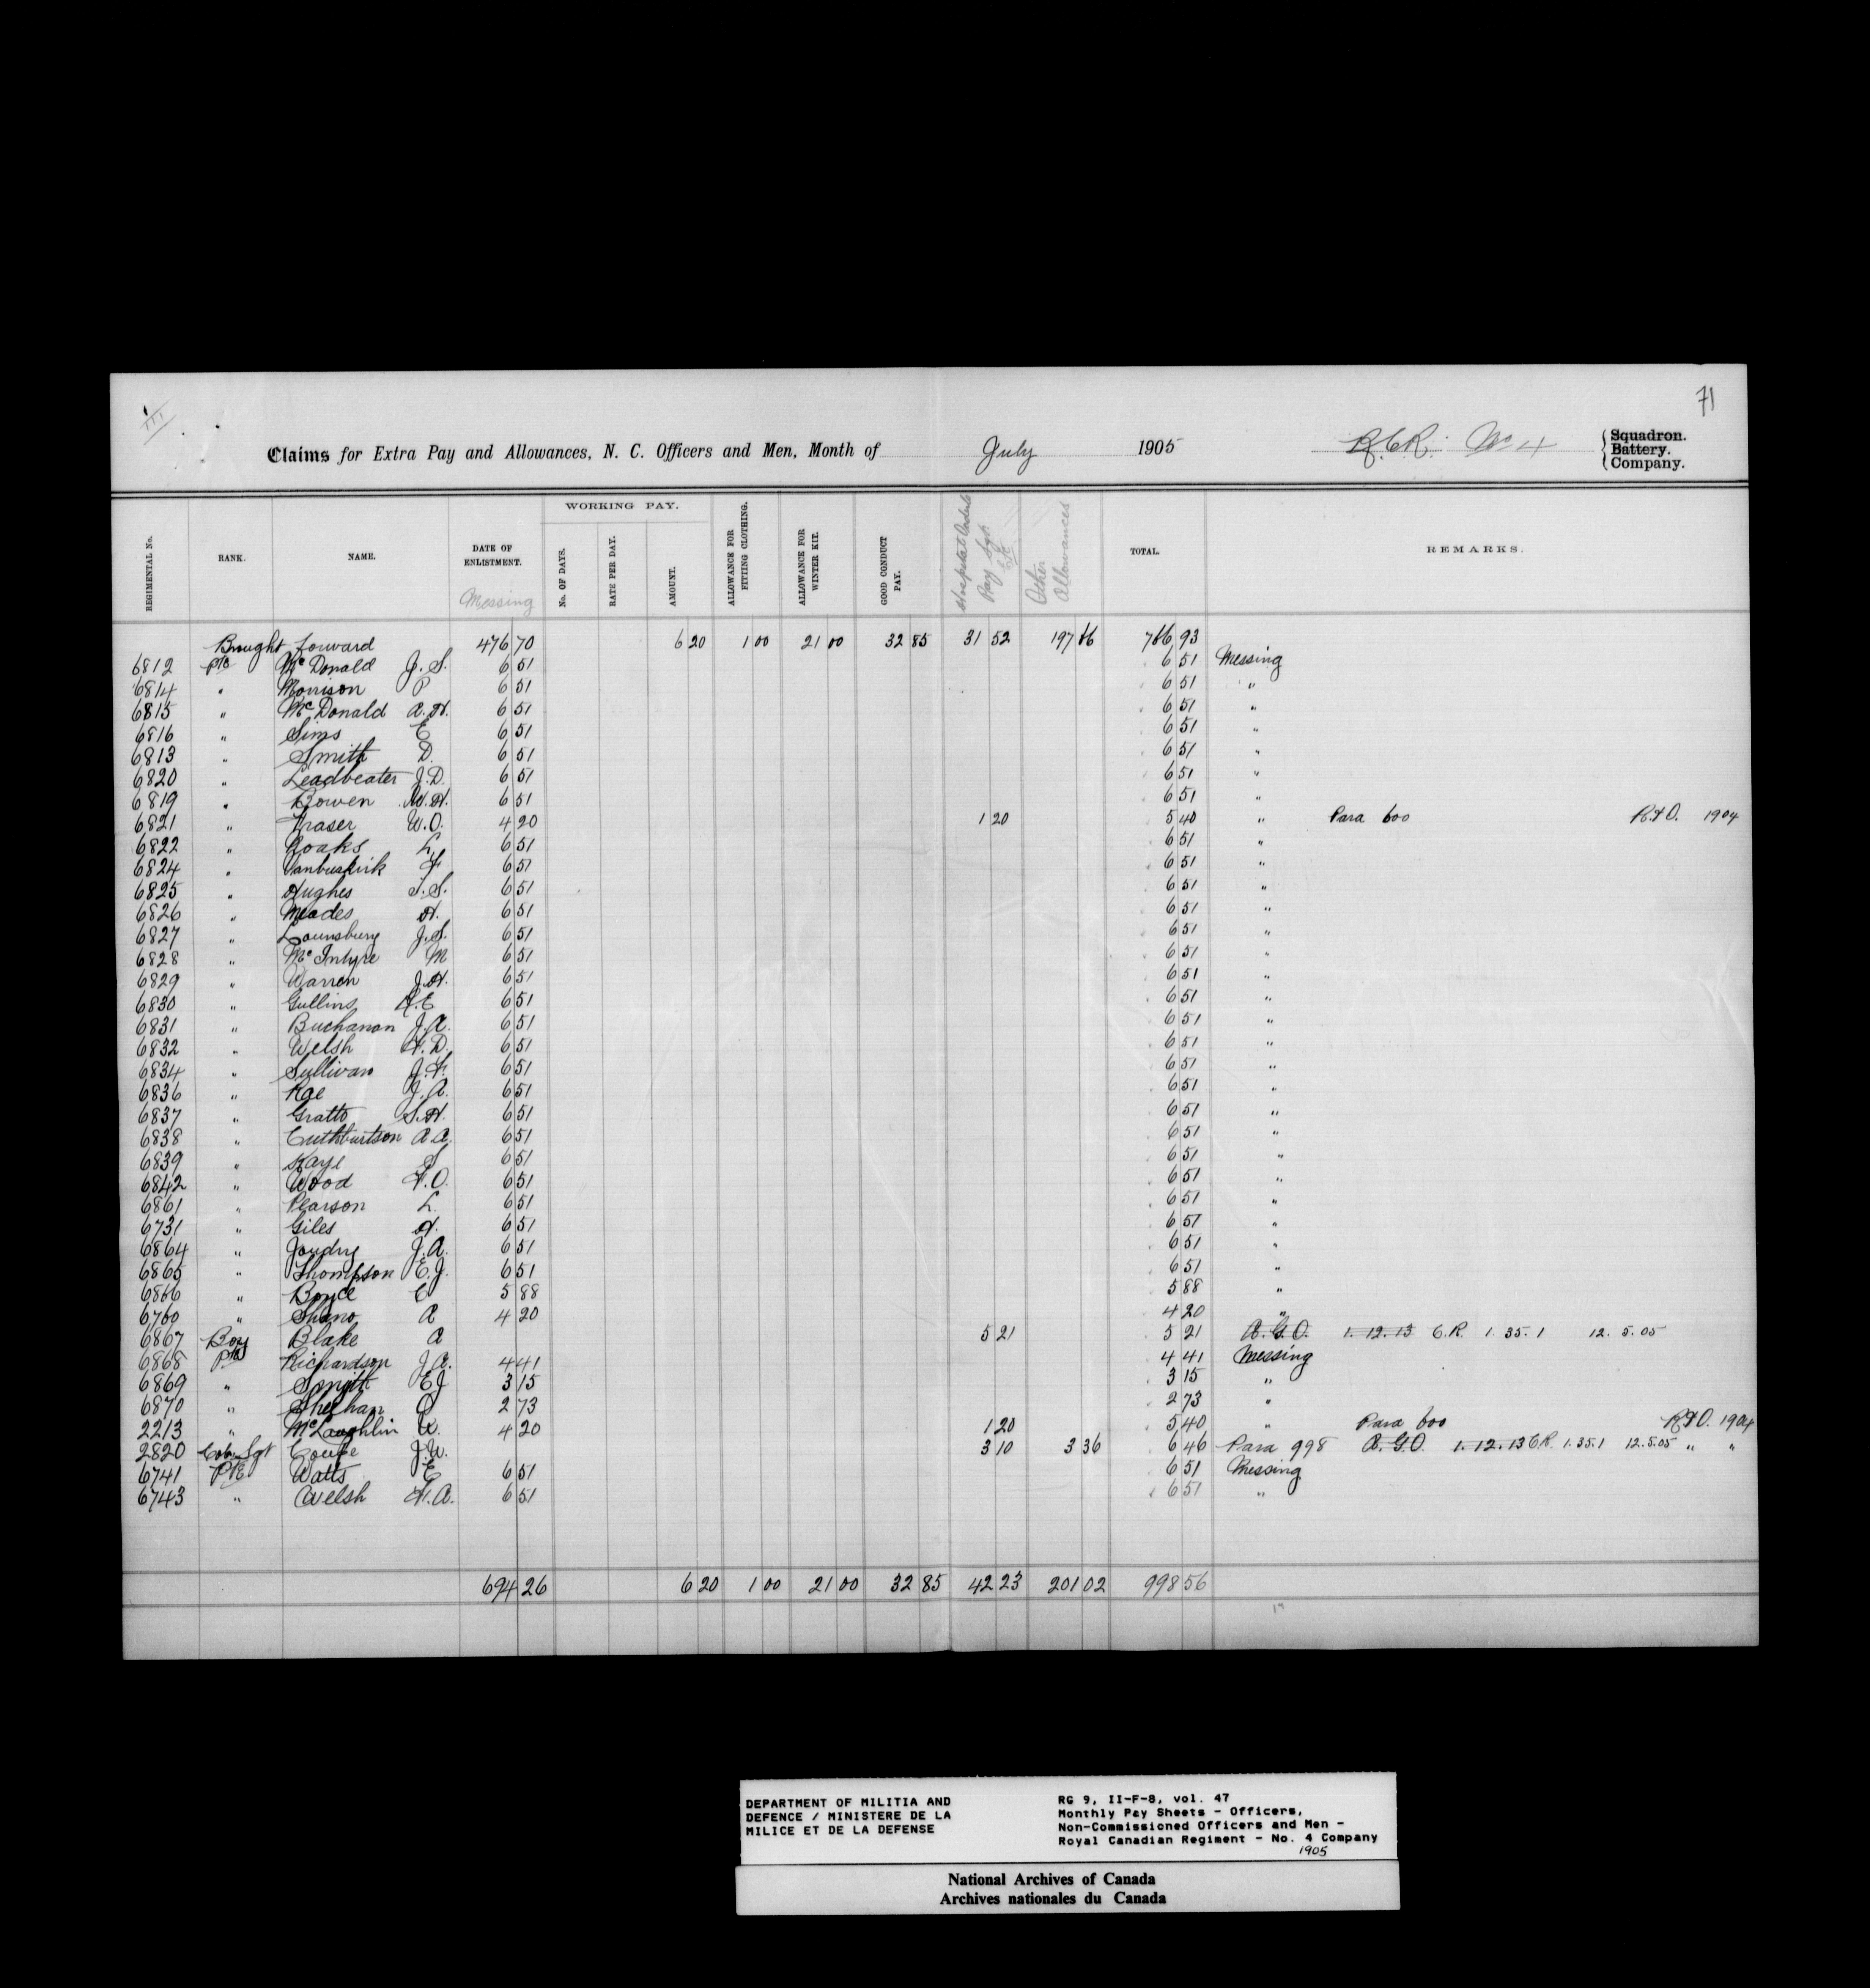 71
Claims for Extra Pay and Allowances, N. C. Officers and Men, Month of July 1905 R.C.R. No 4 Squadron. Battery. Company.
REGIMENTAL No. RANK. NAME. DATE OF ENLISTMENT. Messing WORKING PAY. No. OF DAYS. RATE PER DAY. AMOUNT. ALLOWANCE FOR FITTING CLOTHING. ALLOWANCE FOR WINTER KIT. GOOD CONDUCT PAY. Pay Sgt Other Allowances TOTAL. REMARKS.
Brought forward 476 70 6 20 1 00 21 00 32 85 31 52 197 66 766 93
6812 Pte McDonald J. S. 6 51 6 51 Messing
6814 " Morrison P 6 51 6 51 "
6815 " McDonald A. H. 6 51 6 51 "
6816 " Sims E 6 51 6 51 "
6813 " Smith D. 6 51 6 51 "
6820 " Leadbeater J. D. 6 51 6 51 "
6819 " Bowen W. H. 6 51 6 51 "
6821 " Fraser W. O. 4 20 1 20 5 40 " Para 600 R & O. 1904
6822 " Roaks L. 6 51 6 51 "
6824 " Vanbuskirk F 6 51 6 51 "
6825 " Hughes T. S. 6 51 6 51 "
6826 " Meades H. 6 51 6 51 "
6827 " Lounsbury J. S. 6 51 6 51 "
6828 " McIntyre M 6 51 6 51 "
6829 " Warren J. H. 6 51 6 51 "
6830 " Gullins R. E 6 51 6 51 "
6831 " Buchanan J. A. 6 51 6 51 "
6832 " Welsh H. D. 6 51 6 51 "
6834 " Sullivan J. F. 6 51 6 51 "
6836 " Rae J. A. 6 51 6 51 "
6837 " Gratto S. H. 6 51 6 51 "
6838 " Cuthbertson A A. 6 51 6 51 "
6839 " Kaye S 6 51 6 51 "
6842 " Wood F. O. 6 51 6 51 "
6861 " Pearson L. 6 51 6 51 "
6731 " Giles H. 6 51 6 51 "
6864 " Joudry J. A. 6 51 6 51 "
6865 " Thompson E. J. 6 51 6 51 "
6866 " Boyce C 5 88 5 88 "
6760 " Shano A 4 20 4 20 "
6867 Boy Blake A 5 21 5 21 A. G. O. 1. 12. 13 C. R. 1. 35. 1 12. 5. 05
6868 Pte Richardson J. A. 4 41 4 41 Messing
6869 " Smith E J 3 15 3 15 "
6870 " Sheehan 2 73 2 73 "
2213 " McLaughlin W. 4 20 1 20 5 40 " Para 600 R & O. 1904
2820 Cob Sgt Coupe J. W. 3 10 3 36 6 46 Para 998 A. G. O. 1. 12. 13 C R. 1. 35. 1 12. 5. 05 " "
6741 Pte Watts E 6 51 6 51 Messing
6743 " Welsh F. A. 6 51 6 51 "
694 26 6 20 1 00 21 00 32 85 42 23 201 02 998 56
DEPARTMENT OF MILITIA AND
DEFENCE / MINISTERE DE LA
MILICE ET DE LA DEFENSE
RG 9, II-F-8, vol. 47
Monthly Pay Sheets - Officers,
Non-Commissioned Officers and Men -
Royal Canadian Regiment - No. 4 Company
1905
National Archives of Canada
Archives nationales du Canada